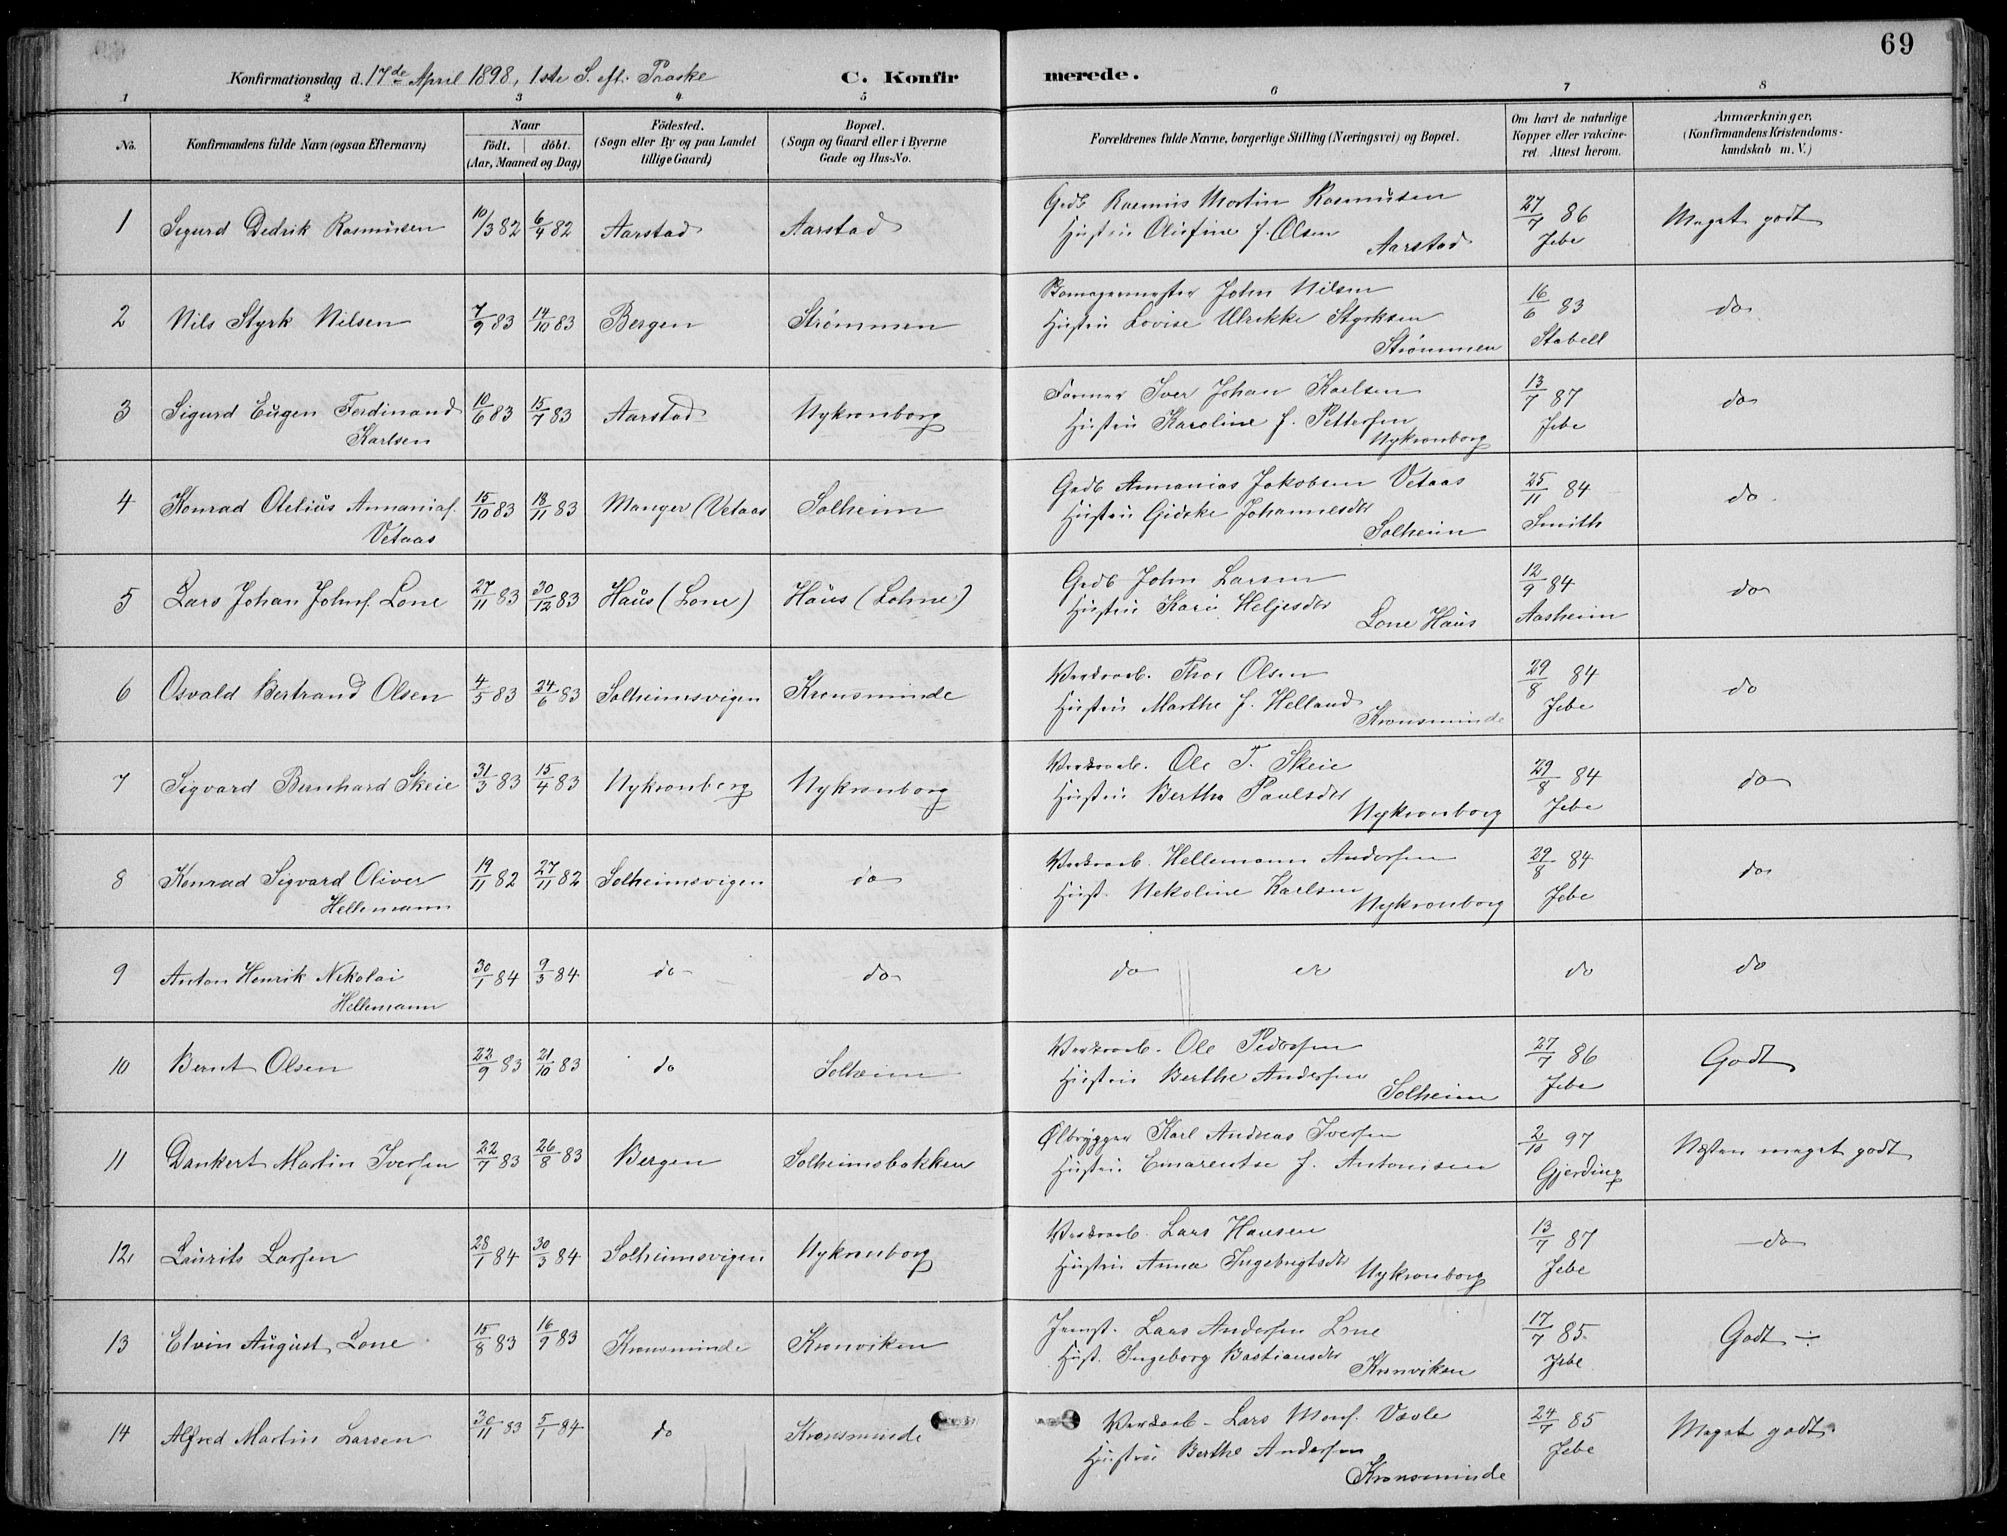 69
Konfirmationsdag d. 17de April 1898, 1ste S. eft. Paaske C. Konfirmerede.
1 2 3 4 5 6 7 8
No. Konfirmandens fulde Navn (ogsaa Efternavn) Naar födt. döbt. (Aar, Maaned og Dag) Födested. (Sogn eller By og paa Landet tillige Gaard) Bopæl. (Sogn og Gaard eller i Byerne Gade og Hus-No. Forældrenes fulde Navne, borgerlige Stilling (Næringsvei) og Bopæl. Om havt de naturlige Kopper eller vakcineret. Attest herom. Anmærkninger, (Konfirmandens Kristendomskundskab m. V.)
1 Sigurd Didrik Rasmusen 10/3 82 6/4 82 Aarstad Aarstad Grdb Rasmus Martin Rasmusen
Hustru Oliefine f. Olsen Aarstad 27/7 86 Jebe Meget godt
2 Nils Styrk Nilsen 7/9 83 14/10 83 Bergen Strømmen John Nilsen
Hustru Lovise Ulrikke Styrksen Strømmen 16/6 83 Stabell do
3 Sigurd Eugen Ferdinand Karlsen 10/6 83 15/7 83 Aarstad Nykronborg Former Iver Johan Karlsen
Hustru Karoline f. Pettersen Nykronborg 13/7 87 Jebe do
4 Konrad Oletius Annaniaf. Vetaas 15/10 83 18/11 83 Manger (Vetaas Solheim Grdb Annanias Jakobsen Vetaas
Hustru Gidske Johannesdr Solheim 25/11 84 Smith do
5 Lars Johan Johnf. Lone 27/11 83 30/12 83 Haus (Lone) Haus (Lohne) Grdb John Larsen
Hustru Kari Heljesdr Lone Haus 12/9 84 Aasheim do
6 Osvald Bertrand Olsen 4/5 83 24/6 83 Solheimsvigen Kronsminde Verksarb. Thor Olsen
Hustru Marthe f. Helland Kronsminde 29/8 84 Jebe do
7 Sigvard Bernhard Skeie 31/3 83 15/4 83 Nykronborg Nykronborg Verksarb. Ole T. Skeie
Hustru Bertha Paulsdr Nykronborg 29/8 84 Jebe do
8 Konrad Sigvard Oliver Hellemann 19/11 82 27/11 82 Solheimsvigen do Verksarb. Hellemann Andersen
Hust. Nekoline Karlsen Nykronborg 29/8 84 Jebe do
9 Anton Henrik Nekolai Hellemann 30/1 84 9/3 84 do do do do do
10 Bernt Olsen 22/9 83 21/10 83 do Solheim Verksarb. Ole Pedersen
Hustru Berthe Andersen Solheim 27/7 86 Jebe Godt
11 Dankert Martin Iversen 22/7 83 26/8 83 Bergen Solheimsbakken Ølbrygger Karl Andreas Iversen
Hustru Emarentse f. Antonisen 2/10 97 Gjerding Næsten meget godt
12 Laurits Larsen 28/1 84 30/3 84 Solheimsvigen Nykronborg Verksarb. Lars Hansen
Hustru Anna Ingebrigtsdr Nykronborg 13/7 87 Jebe do
13 Elvin August Lone 15/8 83 16/9 83 Kronsminde Kronviken Lars Andersen Lone
Hust. Ingeborg Bastiansdr Kronviken 17/7 85 Jebe Godt ÷
14 Alfred Martin Larsen 30/11 83 5/1 84 do Kronsminde Verksarb. Lars Monf. Vavle
Hustru Berthe Andersen Kronsminde 24/7 85 Jebe Meget godt